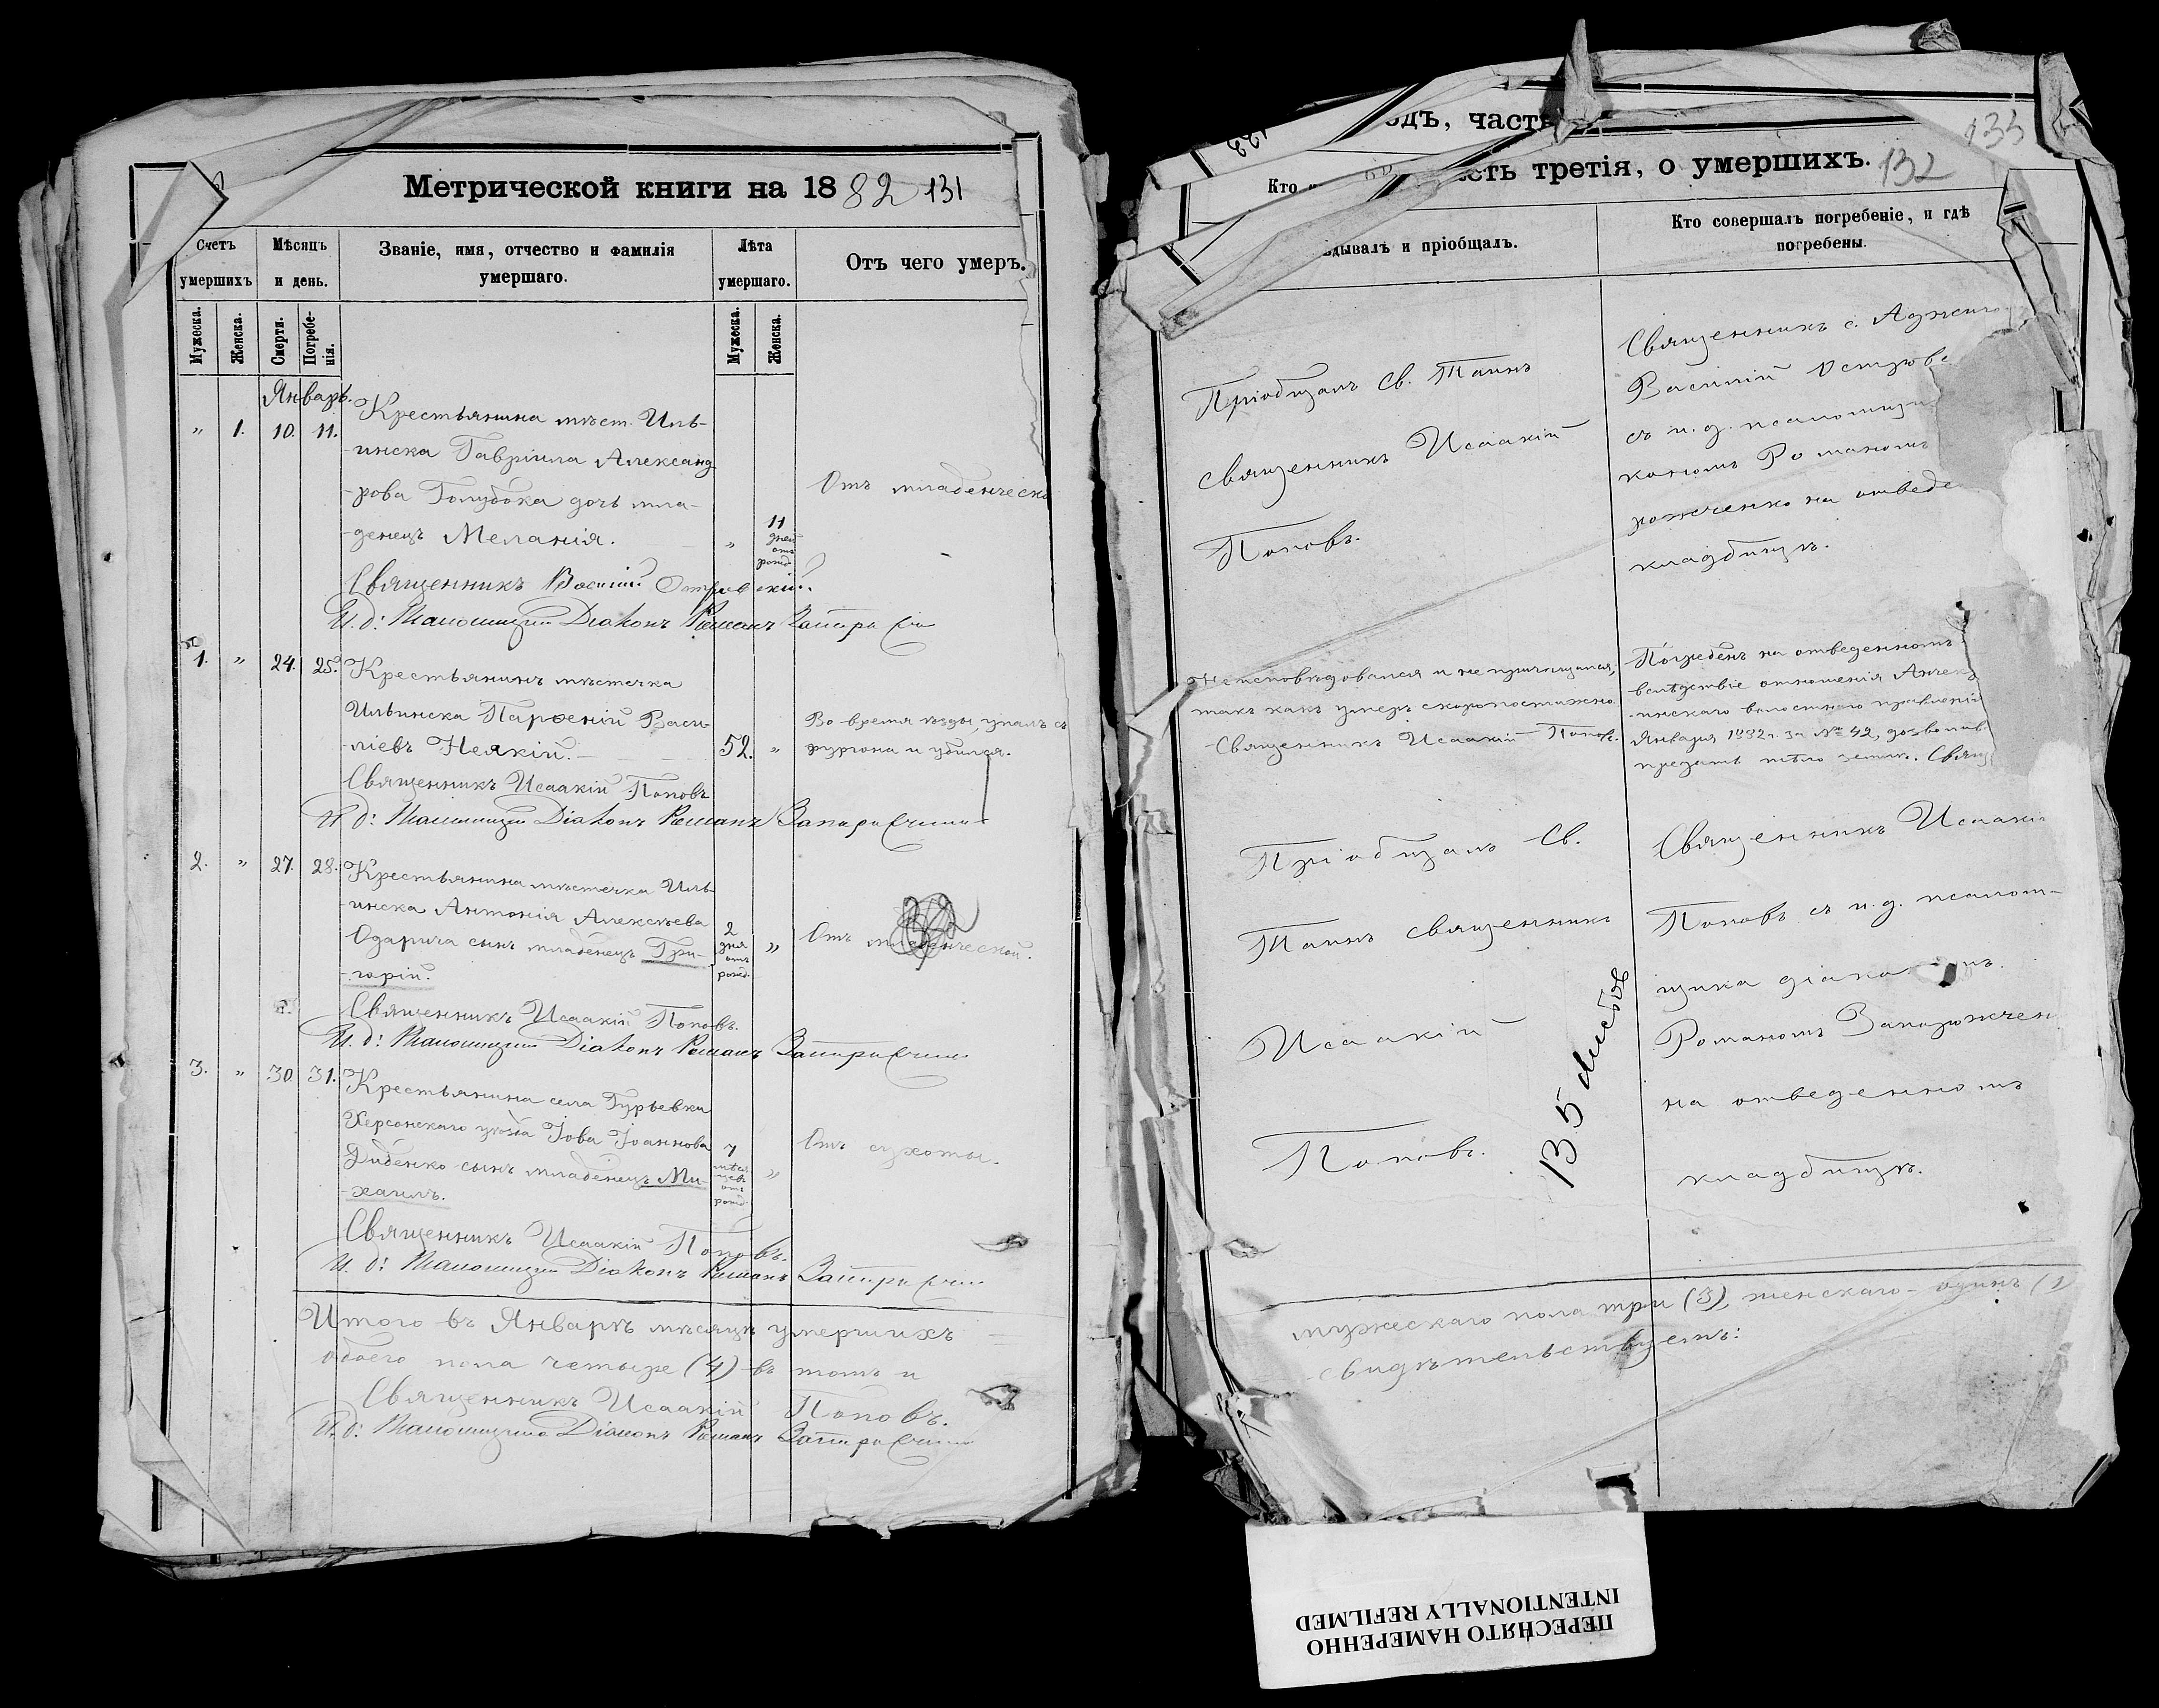 Метрической книги на 1882 131
Счетъ умершихъ
Мѣсяцъ и день.
Званіе, имя, отчество и фамилія умершаго.
Лѣта умершаго.
Отъ чего умеръ.
Мужеска.
Женска.
Смерти.
Погребенія.
Мужеска.
Женска.
Январь.
„ 1. 10. 11.
Крестьянина мѣст. Иль-
-инска Гавріила Александ-
-рова Голубока дочь мла-
-денецъ Меланія.
„ 11 дней отъ рожд.
Отъ младенческо
Священникъ Василій Островскій.
И. д: Псаломщика Діаконъ Романъ
1. „ 24. 25.
Крестьянинъ мѣстечка
Ильинска Парѳеній Васи-
-ліевъ Неякій.
52. „
Во время ѣзды, упалъ съ
фургона и убился.
Священникъ Исаакій Поповъ
И д: Псаломщика Діаконъ Романъ
2. „ 27. 28.
Крестьянина мѣстечка Иль-
-инска Антонія Алексѣева
Одарича сынъ младенецъ Гри-
-горій.
2 дня отъ рожд. „
Отъ младенческой.
Священникъ Исаакій Поповъ.
И. д: Псаломщика Діаконъ Романъ
3. „ 30. 31.
Крестьянина села Гурьевка
Херсонскаго уѣзда Іова Іоаннова
Диденко сынъ младенецъ Ми-
-хаилъ.
7 мѣсяцевъ отъ рожд. „
Отъ сухоты.
Священникъ Исаакій Поповъ.
И. д: Псаломщика Діаконъ Романъ
Итого въ Январѣ мѣсяцѣ умершихъ
обоего пола четыре (4) въ томъ и
Священникъ Исаакій Поповъ.
И. д: Псаломщика Діаконъ Романъ
одъ, часть
133
135
сть третія, о умершихъ. 132
Кто
дывалъ и пріобщалъ.
Кто совершалъ погребеніе, и гдѣ
погребены.
Пріобщалъ Св. Таинъ
священникъ Исаакій
Поповъ.
Священникъ с. Аджиго
Василій Островс
съ и. д. псаломщи
кономъ Романомъ
рожченко на отведе
кладбищѣ.
Неисповѣдовался и не причащался,
такъ какъ умеръ скоропостижно.
Священникъ Исаакій Поповъ.
Погребенъ на отведенномъ
вслѣдствіе отношенія Алекс
-инскаго волостного правленія
Января 1882 г. за № 42, дозволив
предать тѣло землѣ. Свящ
Пріобщалъ Св.
Таинъ священникъ
Исаакій
Поповъ.
Священникъ Исааки
Поповъ съ и. д. псалом-
щика діако мъ
Романомъ Запорожчен
на отведенномъ
кладбищѣ.
135 листовъ
мужескаго пола три (3), женскаго - одинъ (1
свидѣтельствуетъ:
ПЕРЕСНЯТО НАМЕРЕННО
INTENTIONALLY REFILMED